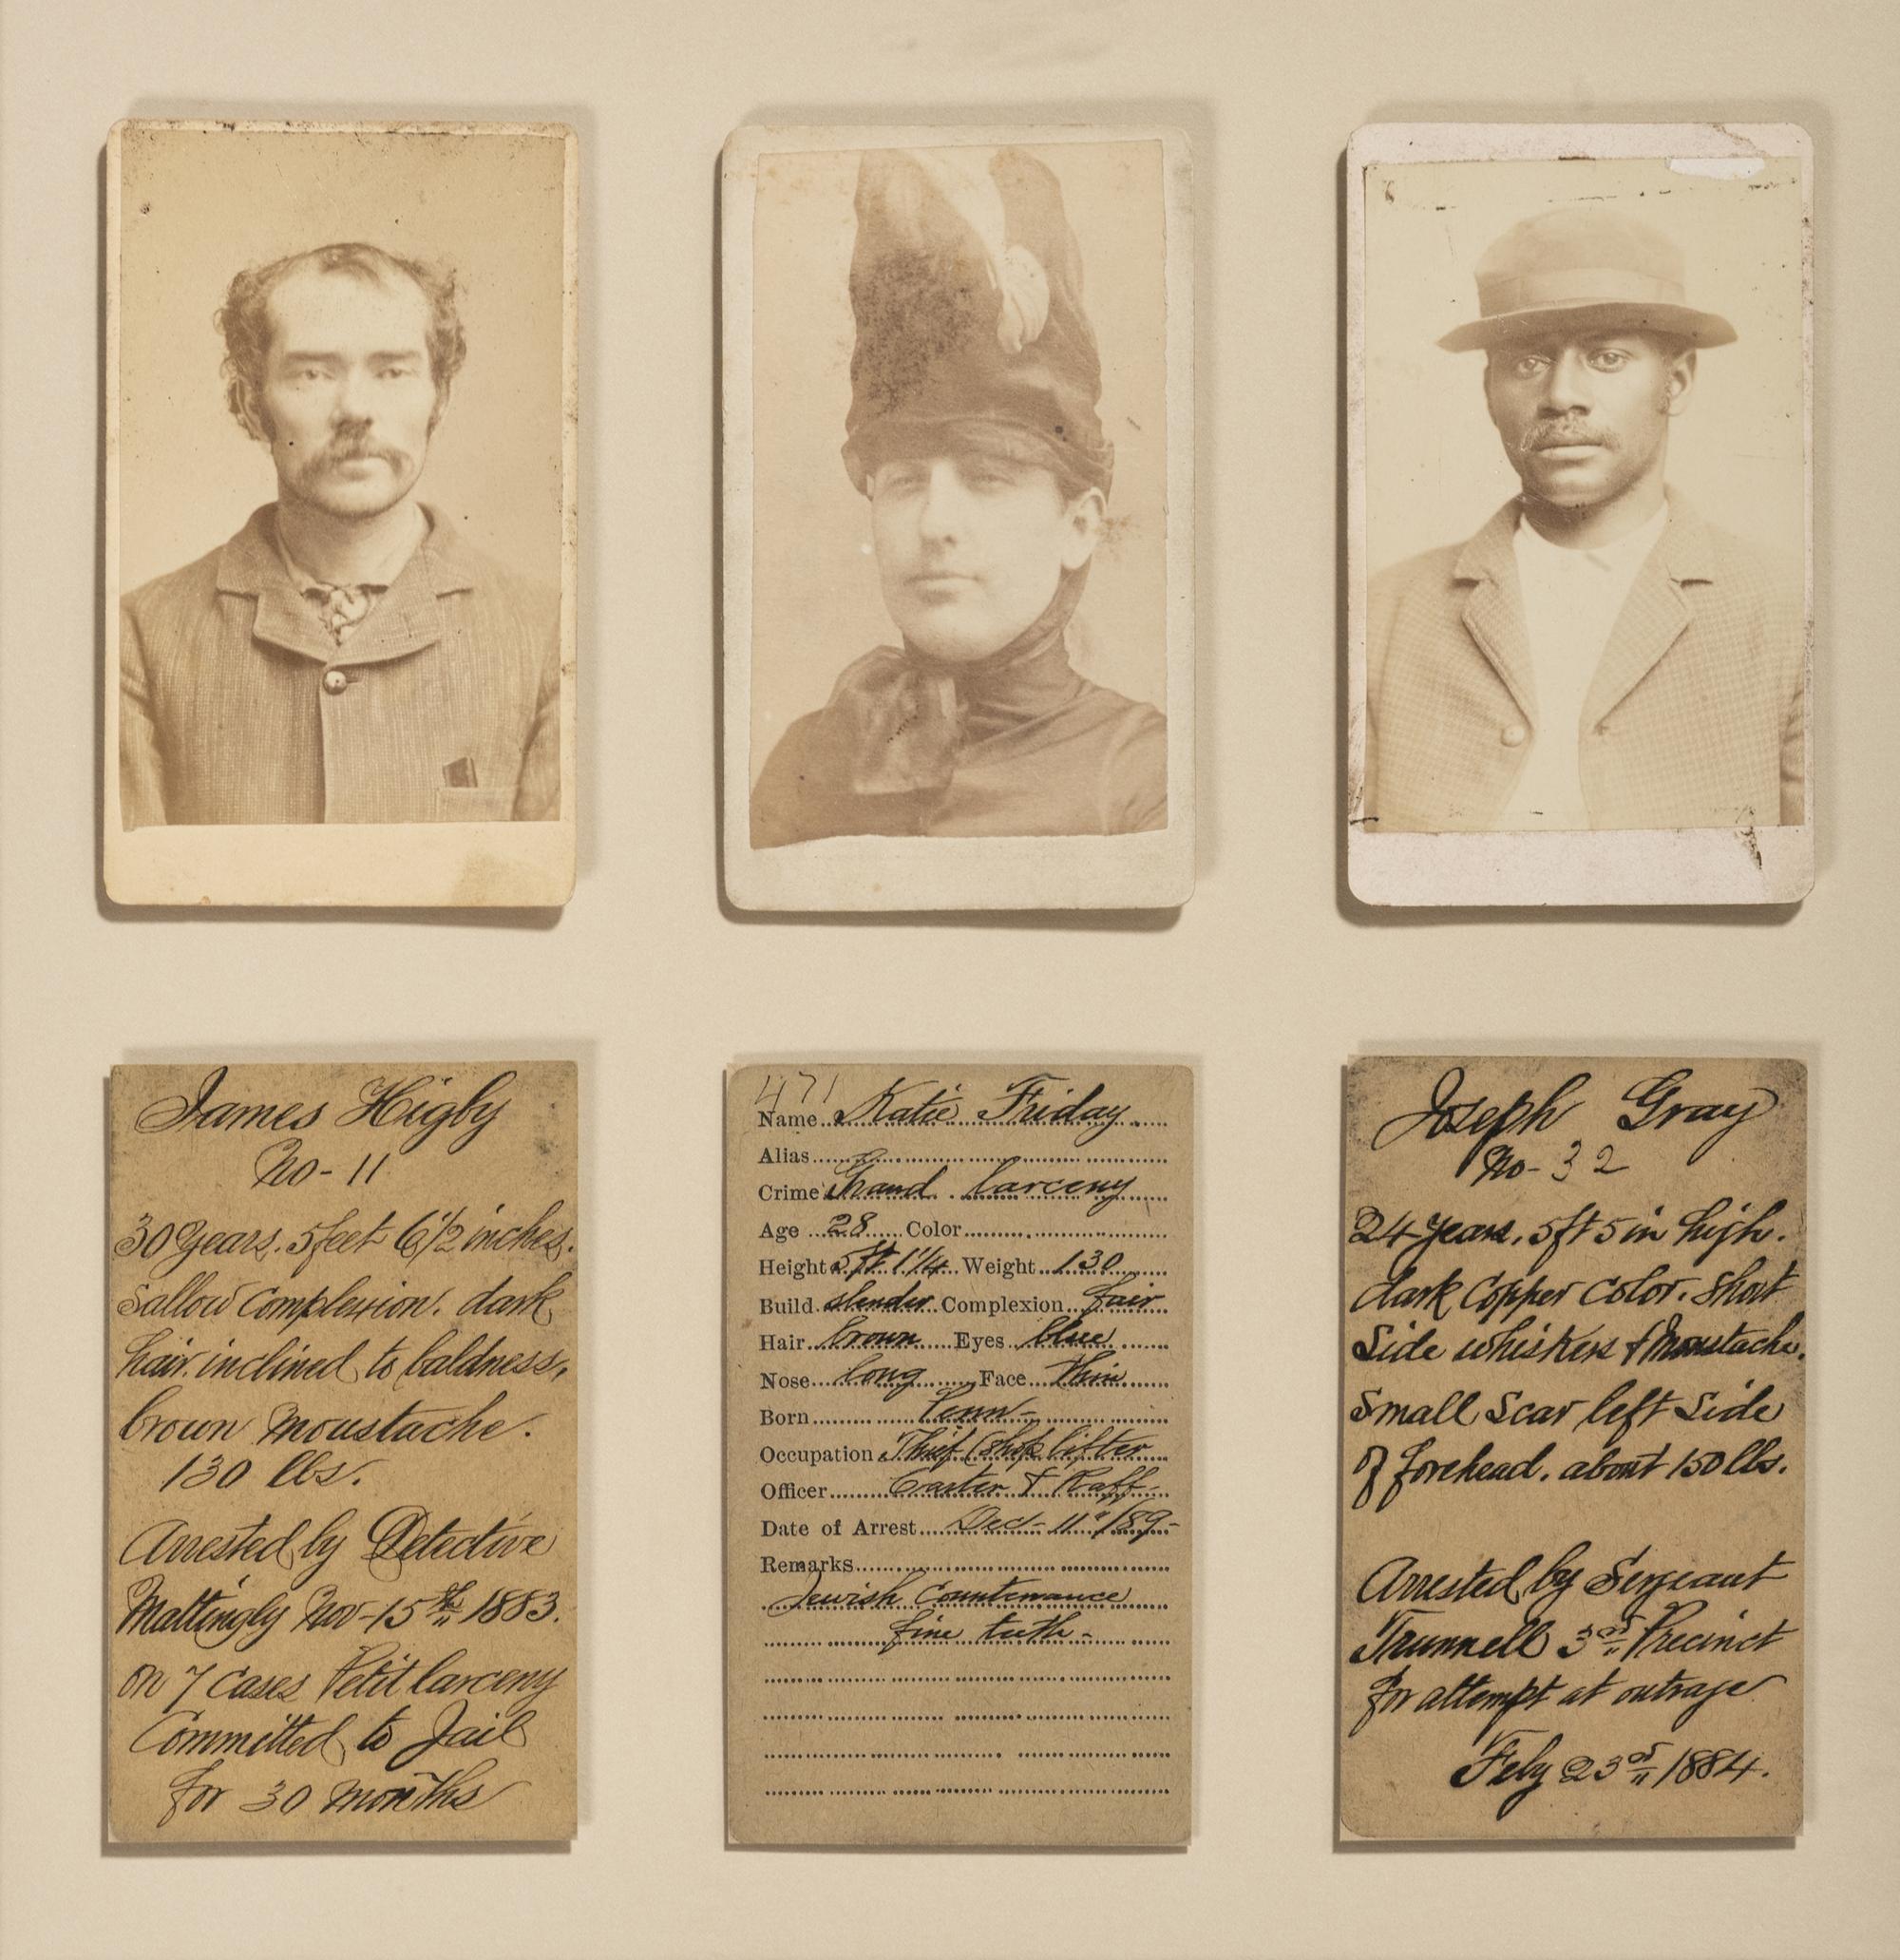 James Higby
No- 11
30 Years. 5 feet 6 1/2 inches.
Sallow Complexion. dark
hair. inclined to baldness,
brown Moustache.
130 lbs.
Arrested by Detective
Mattingly Nov-15th 1883.
on 7 Cases Petit larceny
Committed to Jail
for 30 months
471
Name Katie Friday
Alias
Crime Grand larceny
Age 28 Color
Height 5 ft 1 1/4 Weight 130
Build slender Complexion fair
Hair brown Eyes blue
Nose long Face thin
Born
Occupation Thief (shop lifter
Officer Carter & Raff-
Date of Arrest Dec- 11"/89-
Remarks
Jewish Countenance
fine teeth-
Joseph Gray
No- 32
24 Years, 5ft 5 in high.
dark Copper Color. Short
Side whiskers & Moustache.
Small Scar left Side
of forehead. about 150 lbs.
Arrested by Sergeant
Trunnell 3rd Precinct
for attempt at outrage
Feby 23rd 1884.